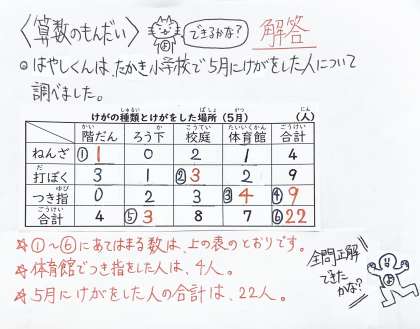 〈算数のもんだい〉 できるかな? 解答
◎はやしくんは、たかき小学校で5月にけがをした人について
調べました。
けがの種類とけがをした場所(5月) (人)
階だん ろう下 校庭 体育館 合計
ねんざ ①1 0 2 1 4
打ぼく 3 1 ②3 2 9
つき指 0 2 3 ③4 ④9
合計 4 ⑤3 8 7 ⑥22
☆①~⑥にあてはまる数は、上の表のとおりです。
☆体育館でつき指をした人は、4人。
☆5月にけがをした人の合計は、22人。
全問正解
できた
かな?